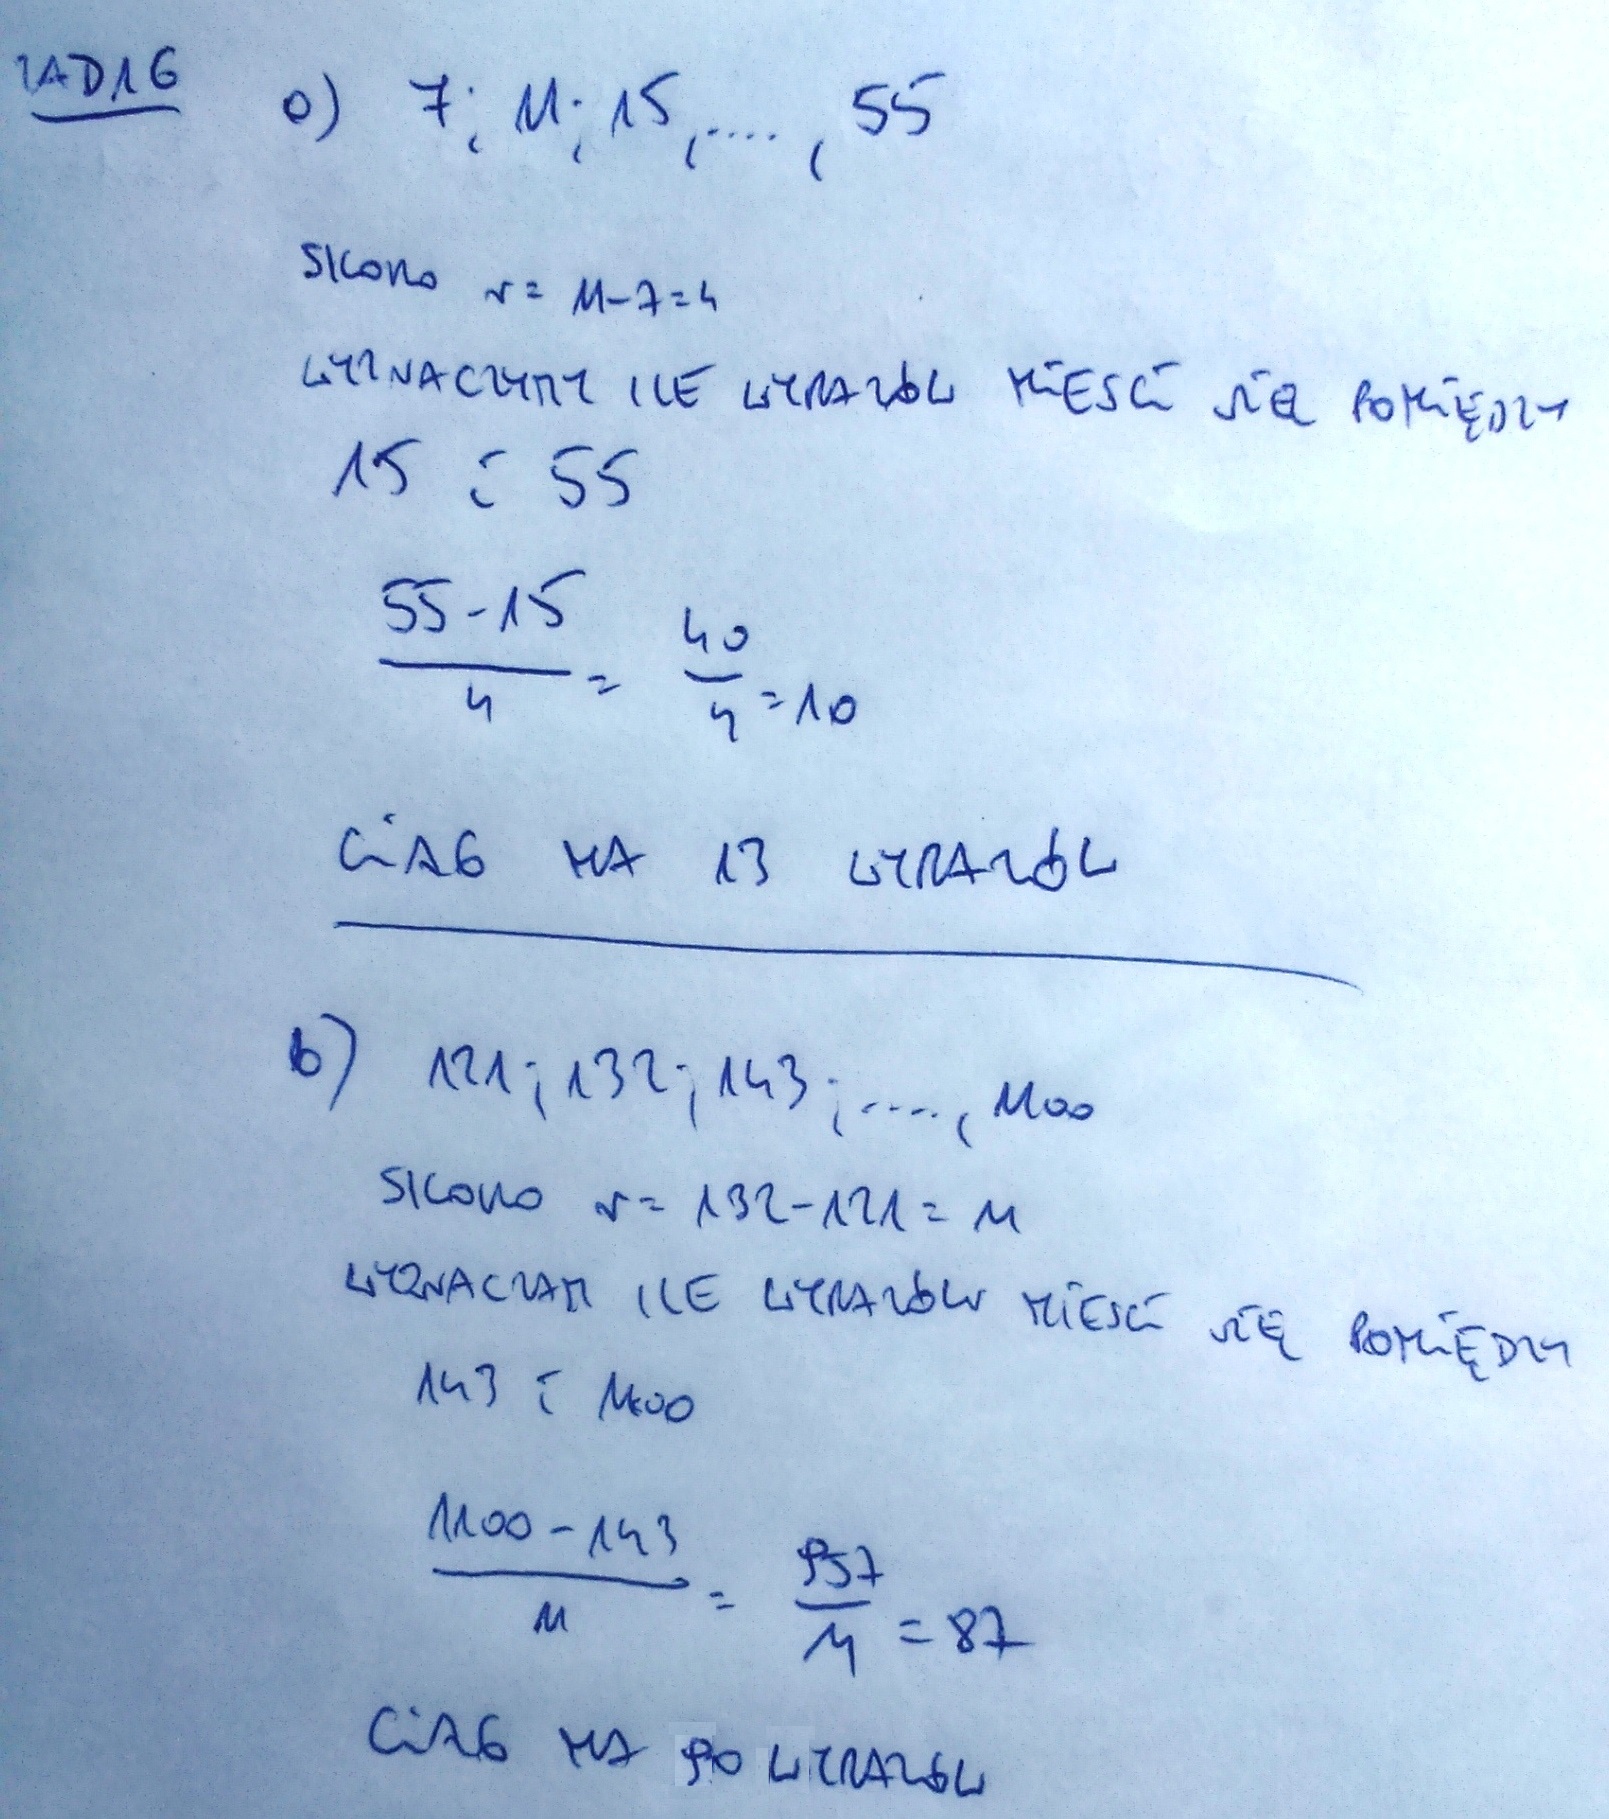 ZAD 16 a) 7; 11; 15, ...., 55
SKORO r = 11-7=4
WYZNACZMY ILE WYRAZÓW MIEŚCI SIĘ POMIĘDZY
15 i 55
55-15/4 = 40/4 = 10
CIĄG MA 13 WYRAZÓW
b) 121; 132; 143; ...., 1100
SKORO r = 132-121 = 11
WYZNACZAM ILE WYRAZÓW MIEŚCI SIĘ POMIĘDZY
143 i 1100
1100-143/11 = 957/11 = 87
CIĄG MA 90 WYRAZÓW